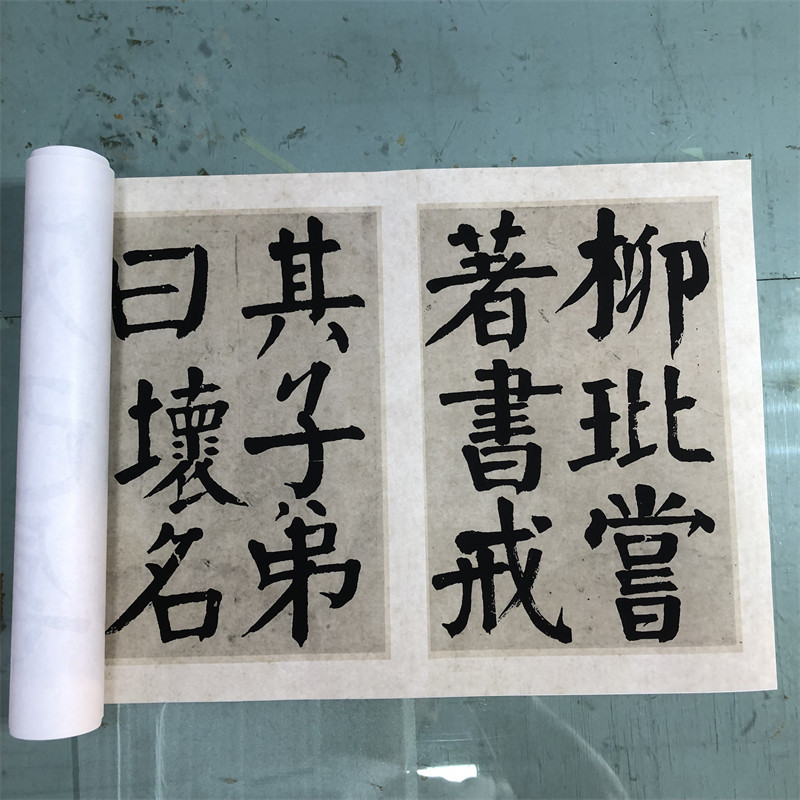 柳玭嘗
著書戒
其子弟
曰壞名